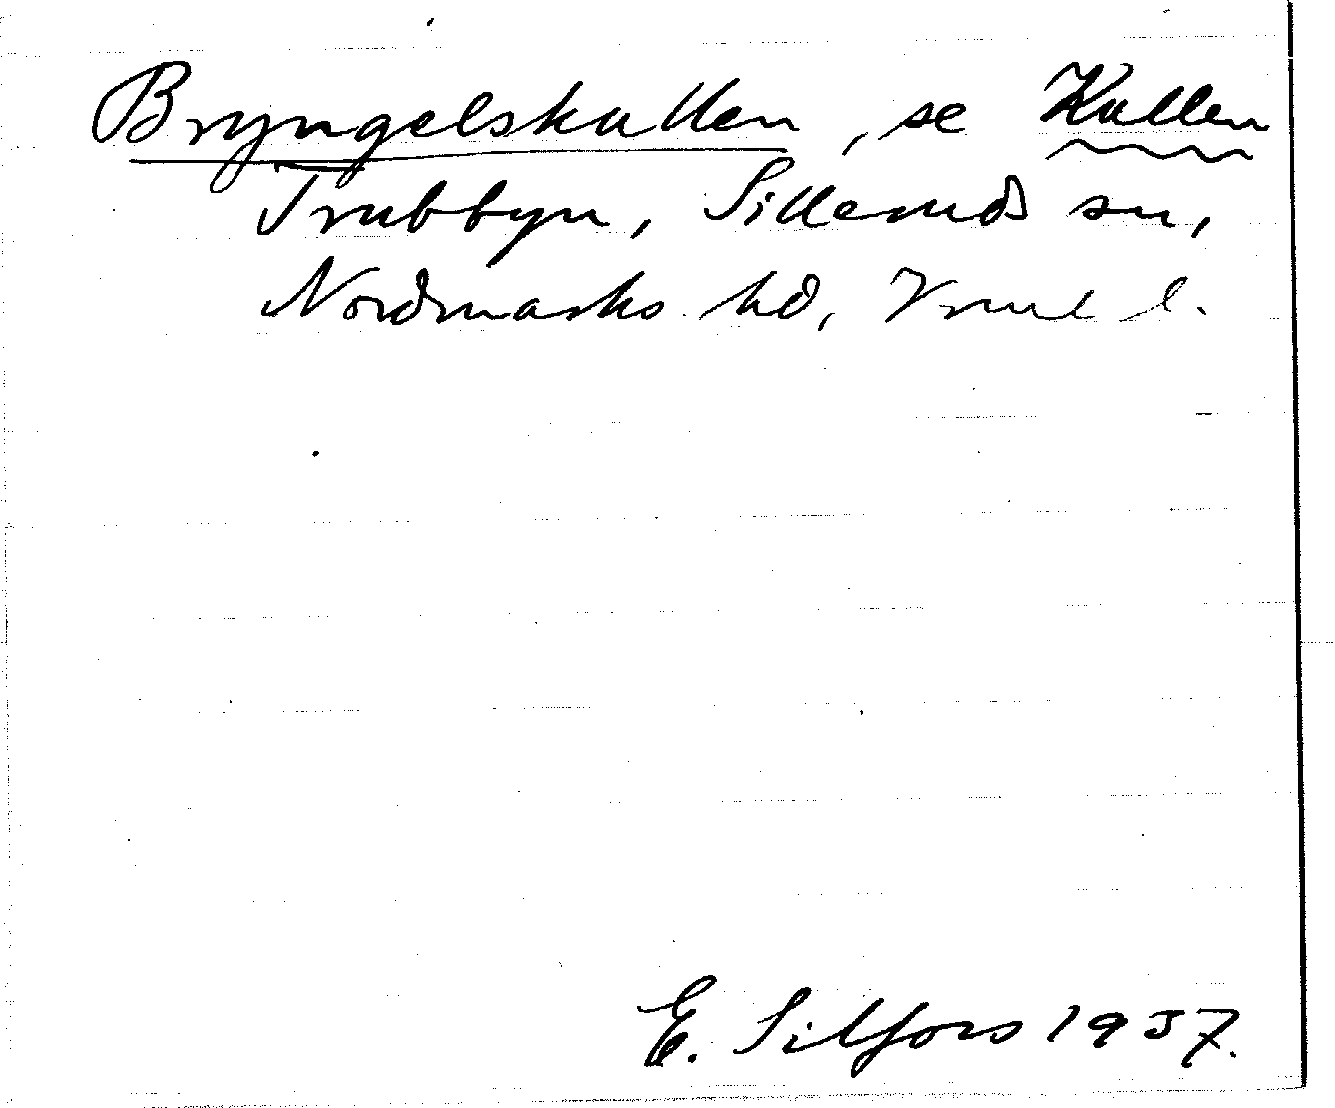 Bryngelskullen, se Kullen
Trubbyn, Silleruds sn,
Nordmarks hd, Vrml l.
E. Silfors 1957.